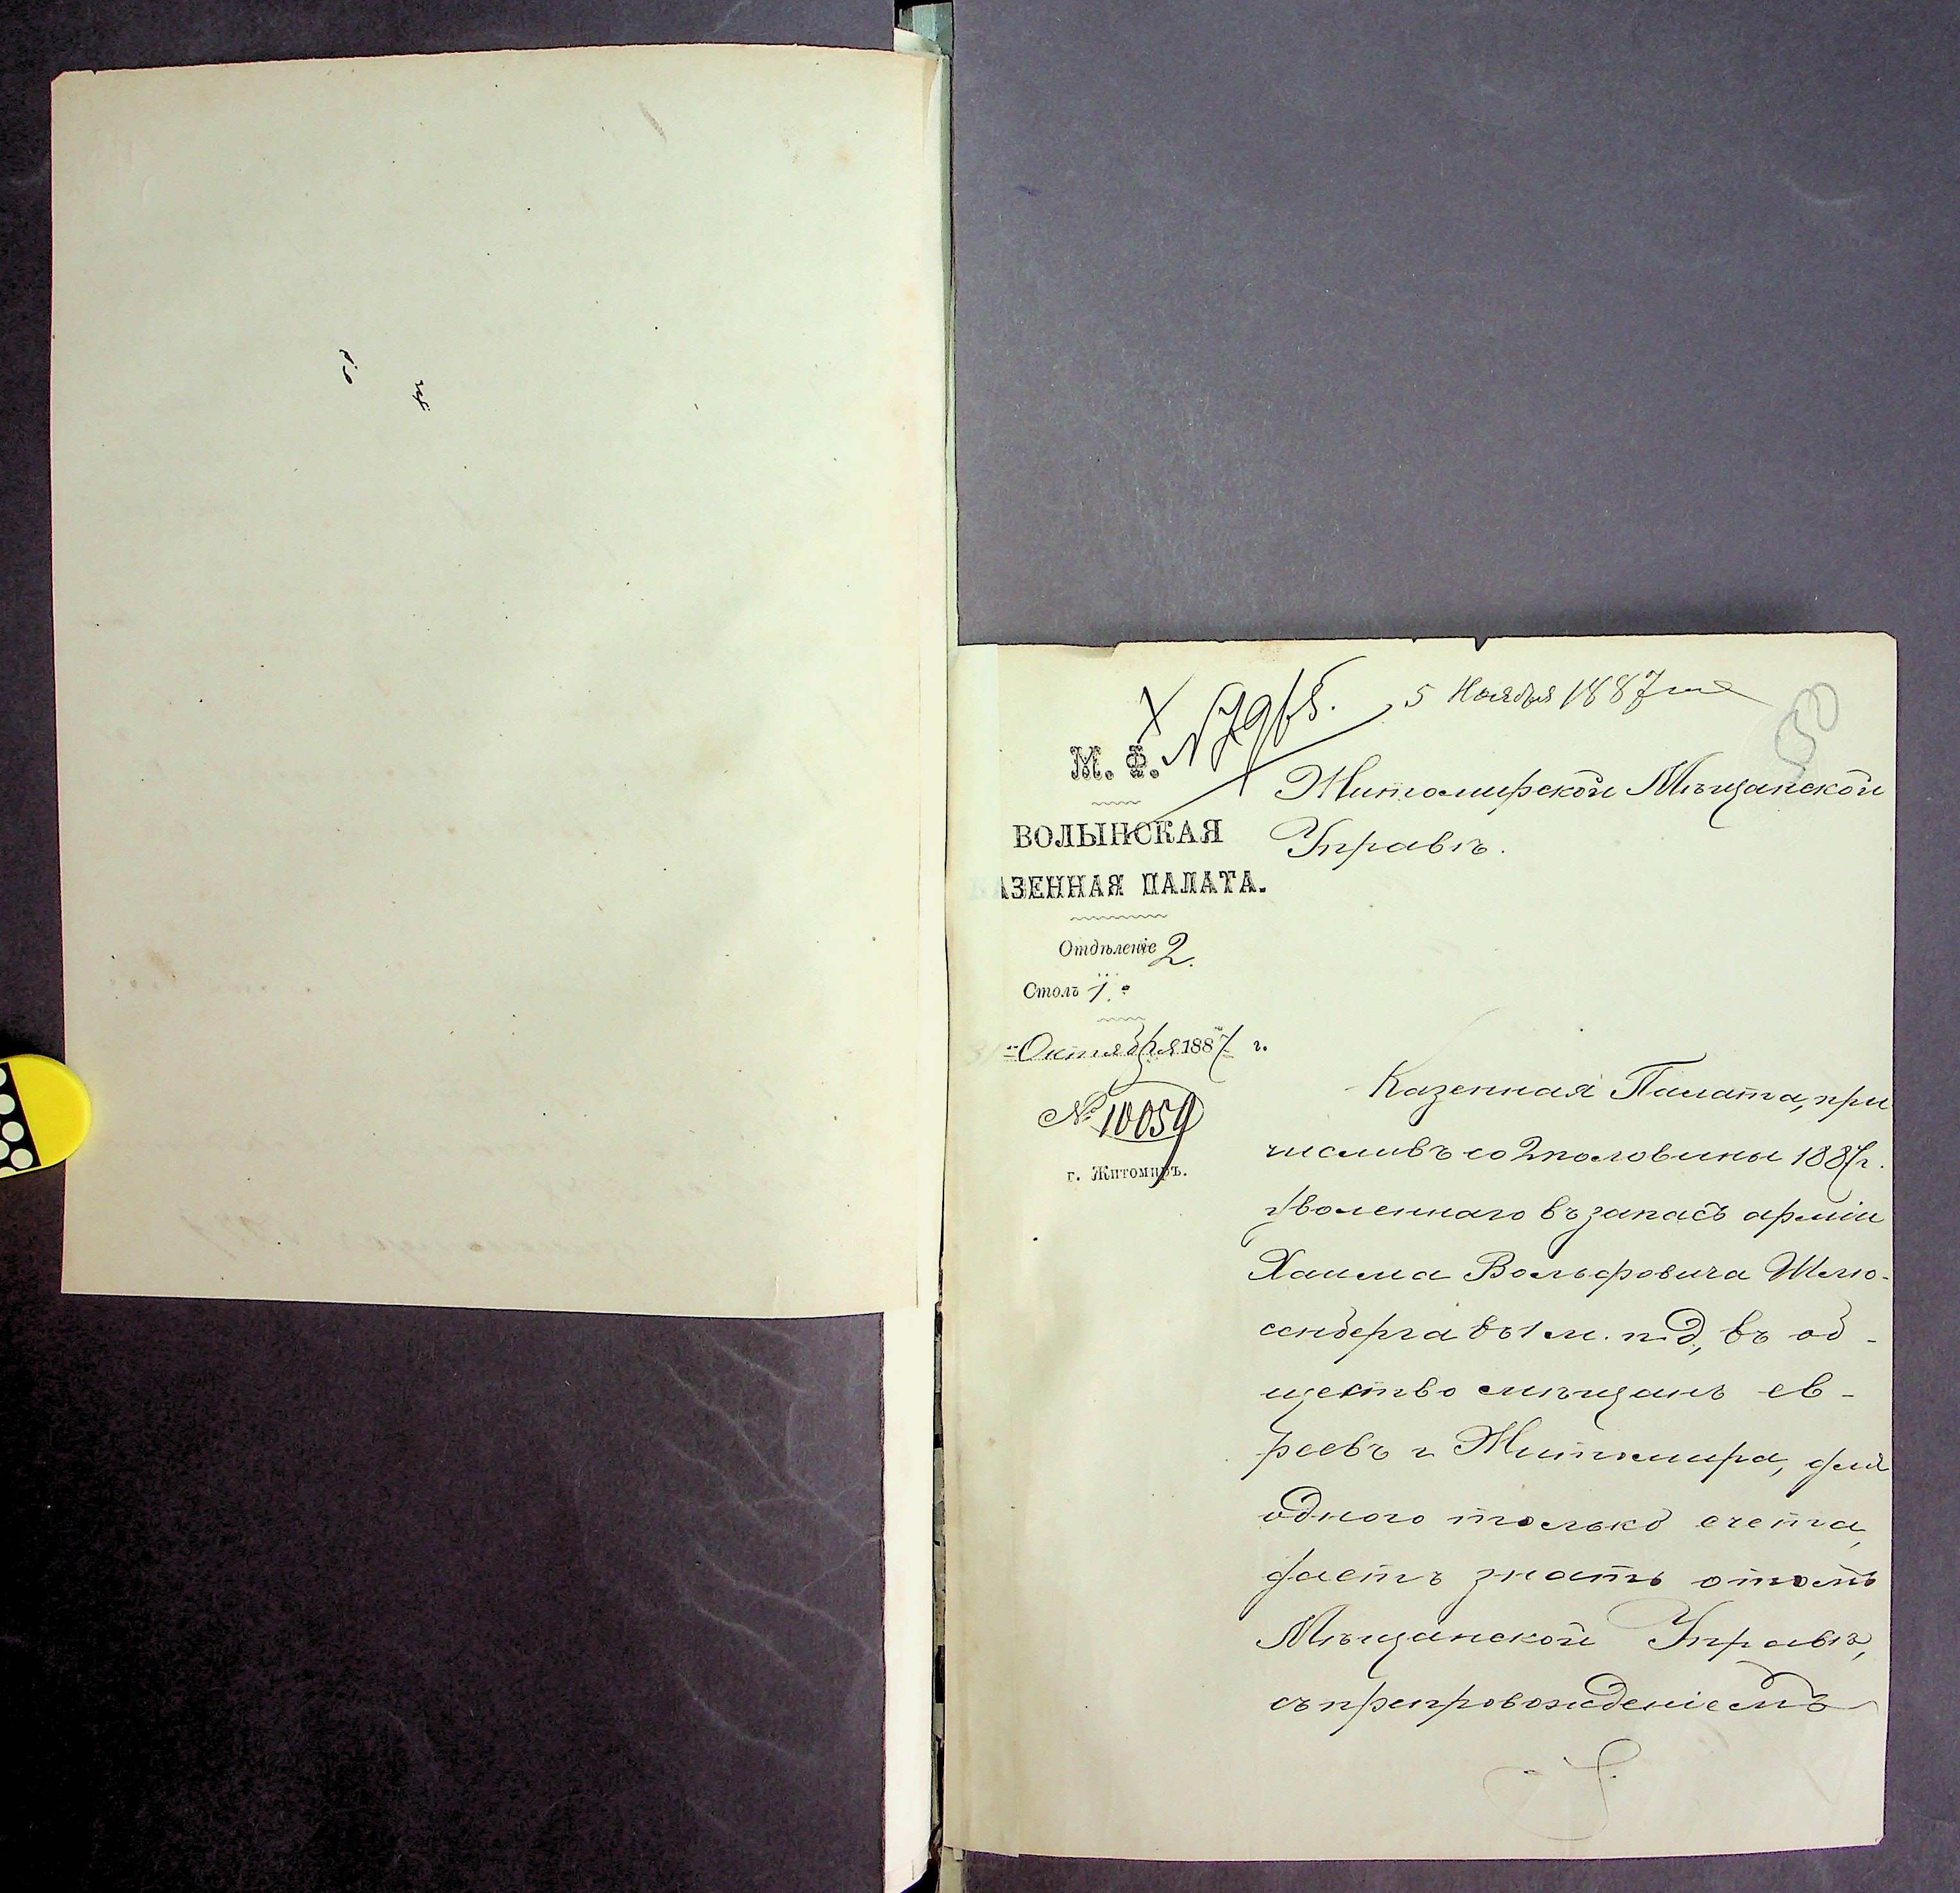 5 Ноября 1887 года
М. Ф.
ВОЛЫНСКАЯ
КАЗЕННАЯ ПАЛАТА.
Отдѣленіе 2.
Столъ 1.
Октября 1887 г.
№ 10059
г. Житомиръ.
Житомирской Мѣщанской
Управѣ.
Казенная Палата, при
числивъ со 2 половины 1887 г.
уволеннаго въ запасъ арміи
Хаима Вольфовича Шлю-
сенберга въ 1 м. п. д., въ об-
щество мѣщанъ ев-
реевъ г. Житомира, для
одного только счета,
даетъ знать о томъ
Мѣщанской Управѣ,
съ препровожденіемъ